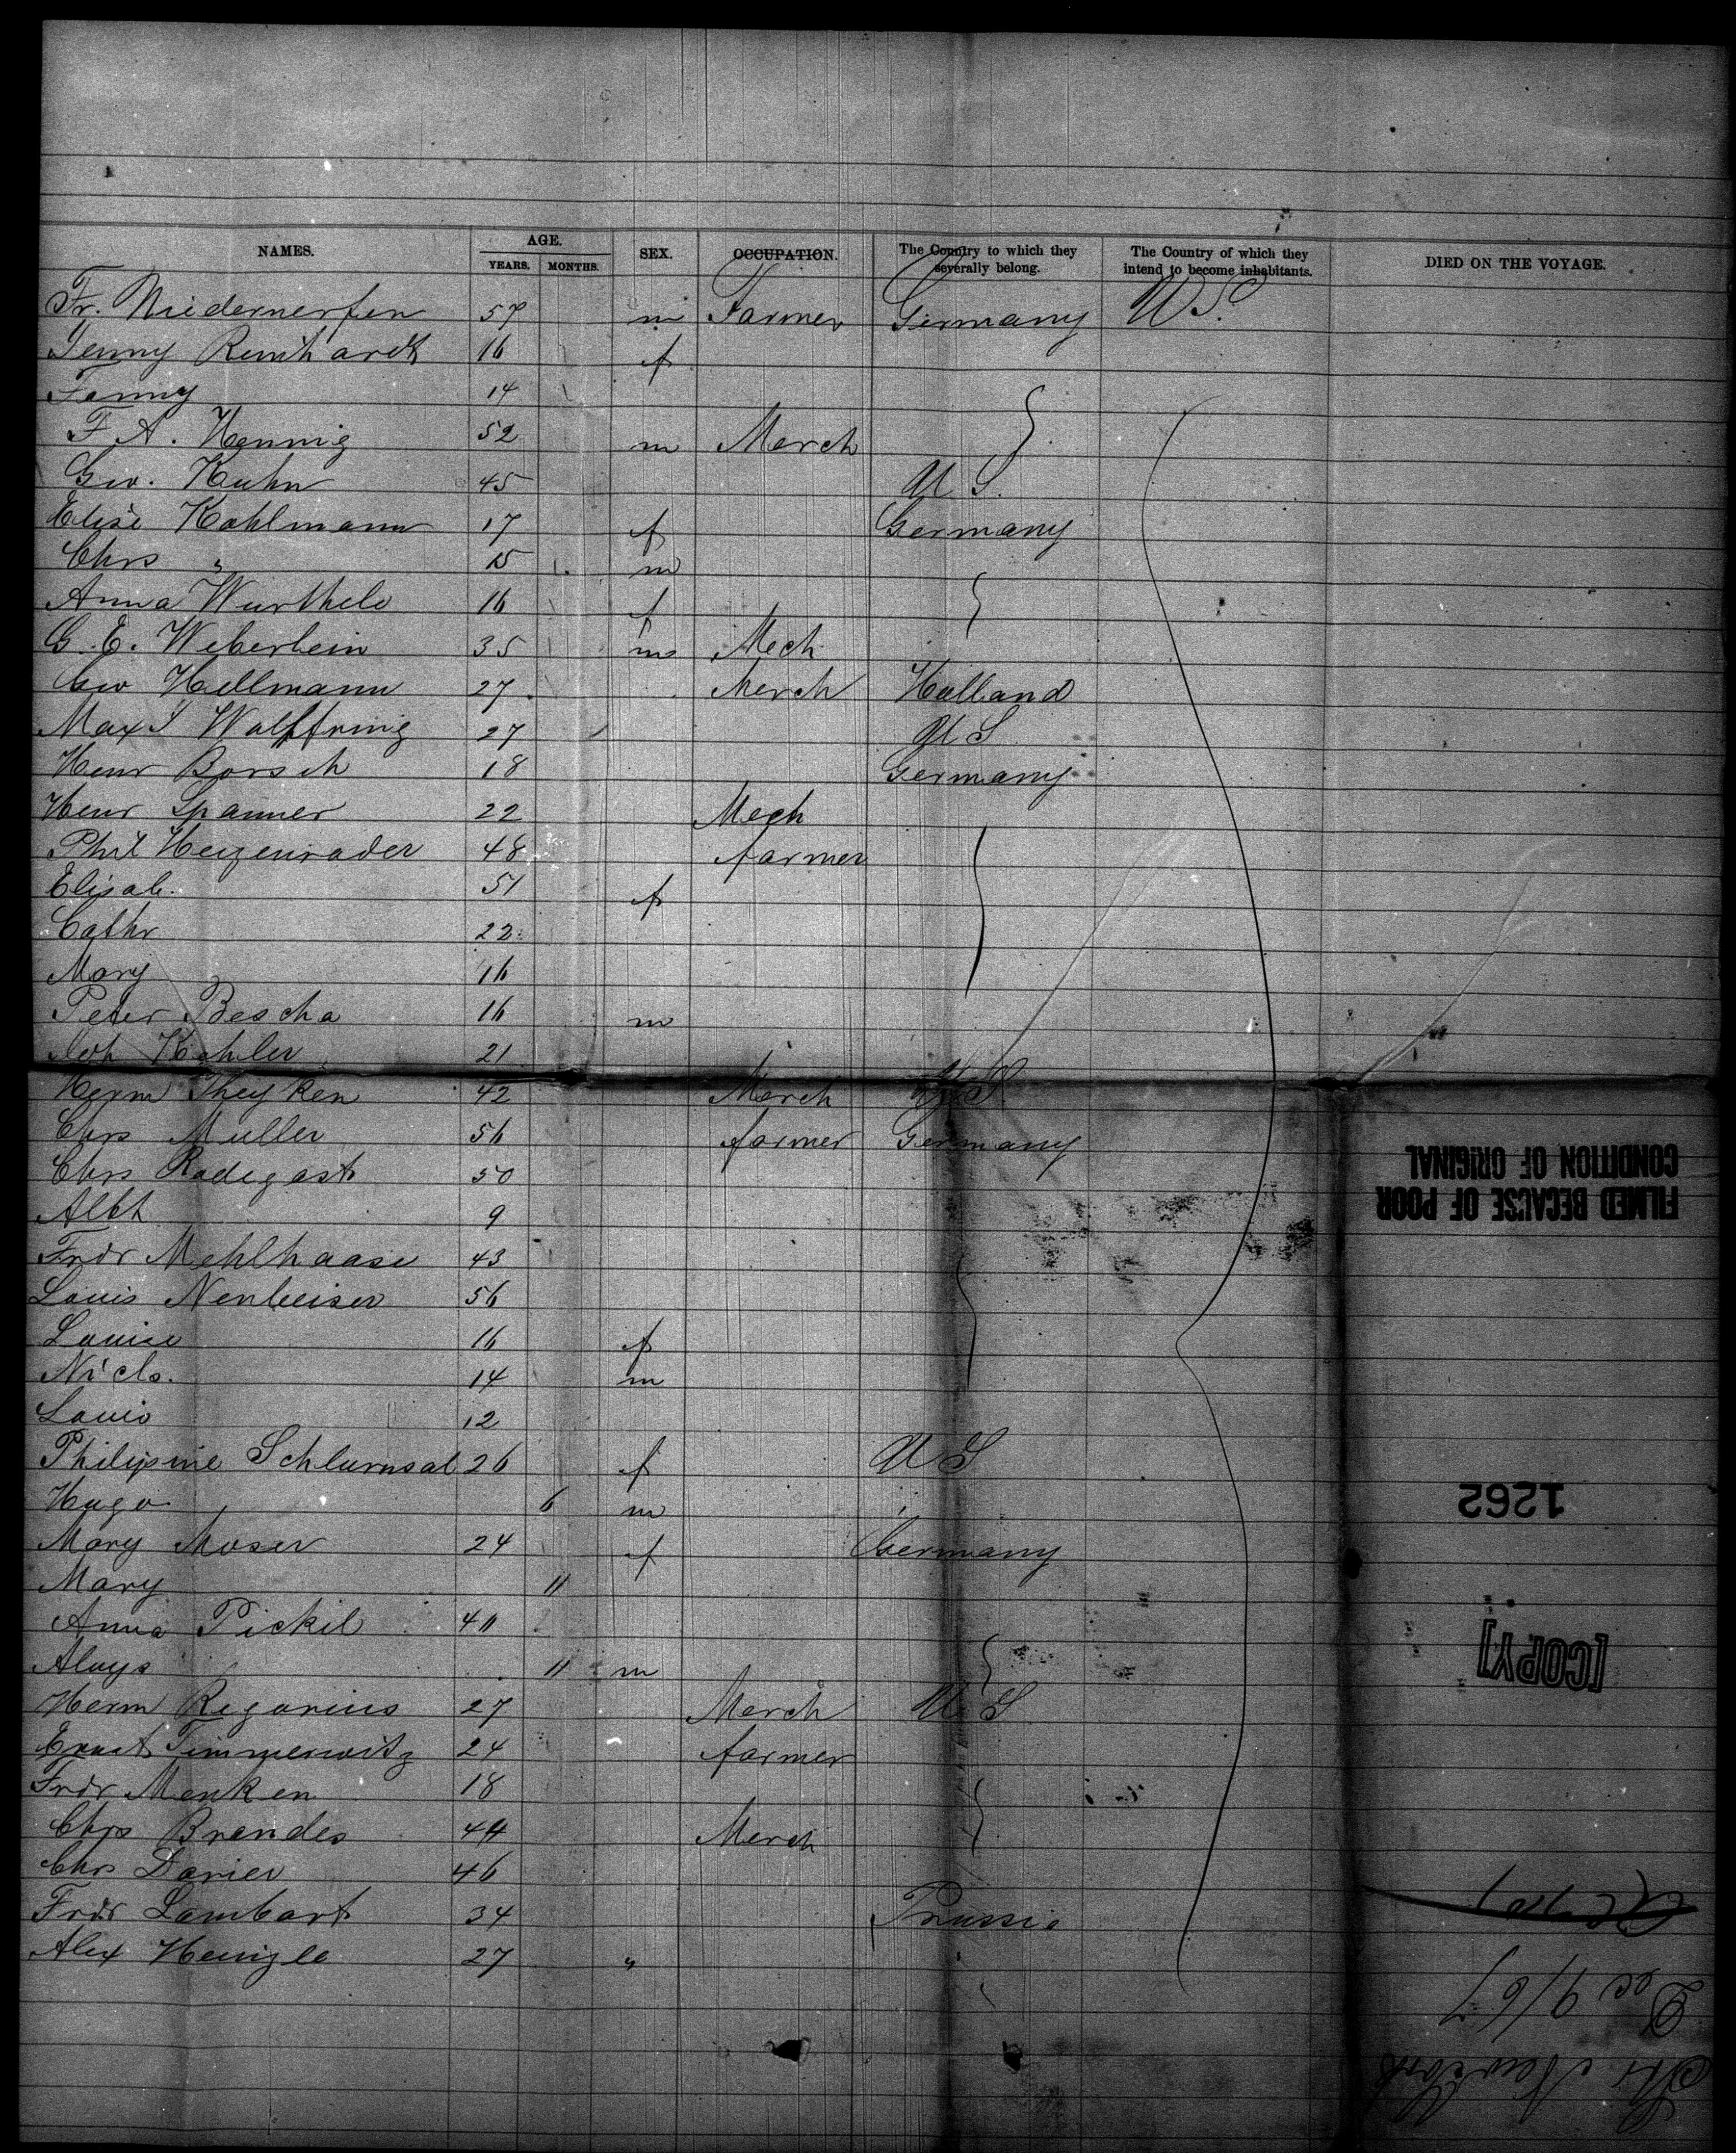 NAMES. AGE. SEX. OCCUPATION. The Country to which they severally belong. The Country of which they intend to become inhabitants. DIED ON THE VOYAGE.
YEARS. MONTHS.
Fr. Niedernerfen 57 m Farmer Germany US.
Jenny Reinhardt 16 f
Fanny 14
F A. Hennig 52 m Merch
Geo. Kuhn 45 U S.
Elise Kohlmann 17 f Germany
Chrs " 15 m
Anna Wurthele 16 f
G. E. Weberbein 35 m Mech
Geo Hellmann 27 Merch Holland
Max S Wolffring 27 U S
Henr Borsch 18 Germany
Henr Spanner 22 Mech
Phil Heizenrader 48 farmer
Elisab. 51 f
Cathr 22
Mary 16
Peter Bescha 16 m
Joh Kohler 21
Herm Theyken 42 Merch U S.
Chrs Muller 56 farmer Germany
Chrs Radegast 50
Albt 9
Fridr Mehlhaase 43
Louis Nenbeiser 56
Louise 16 f
Nicls. 14 m
Louis 12
Philipine Schlurnsal 26 f U S
Hugo 6 m
Mary Moser 24 f Germany
Mary 11
Anna Pickil 40
Aloys 11 m
Herm Regarius 27 Merch U S
Ernst Timmerwitz 24 farmer
Fridr Menken 18
Chrs Brandes 44 Merch
Chrs Darier 46
Fridr Lambart 34 Prussia
Alex Heinzle 27 "
FILMED BECAUSE OF POOR
CONDITION OF ORIGINAL
1262
[COPY]
Dec 9/67
Str New York